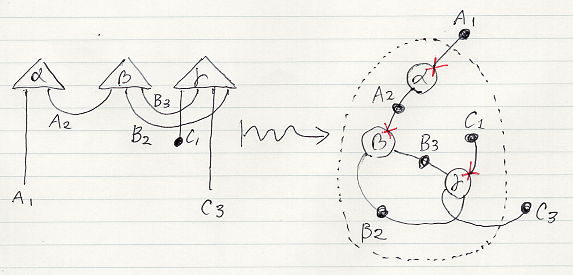 α β γ
A2 B3 B2 C1
A1 C3
A1
α
A2
β B3 C1
γ
B2 C3